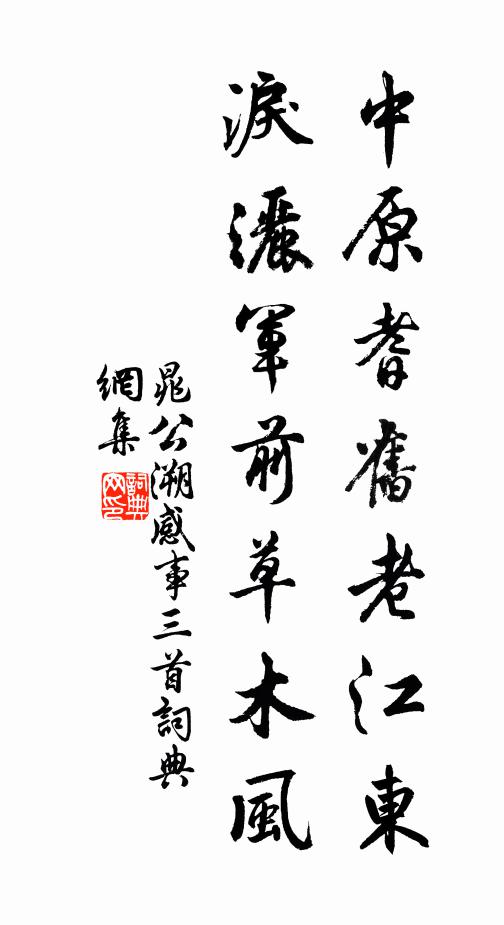 中原耆舊老江東
淚灑軍前草木風
晁公溯感事三首詞典
網集
詞典
网印